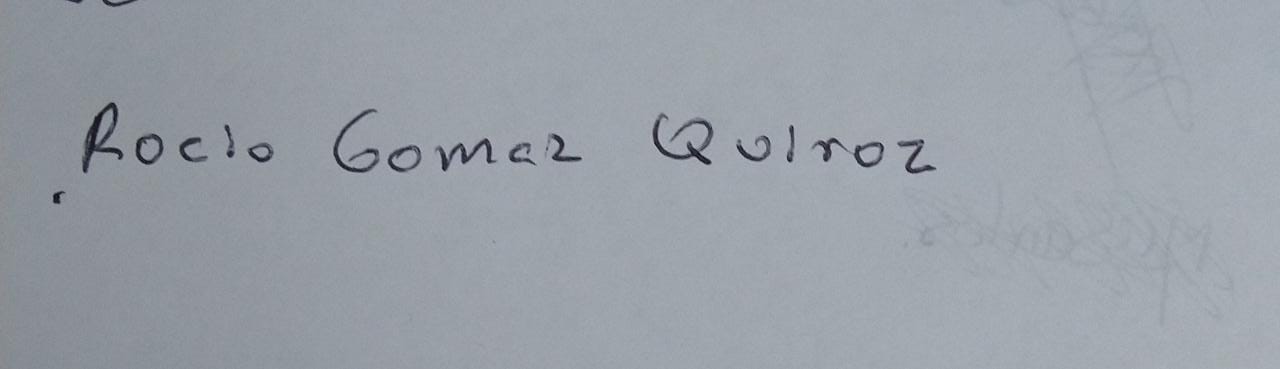 Rocio Gomez Quiroz